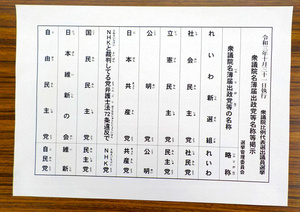 令和三年十月三十一日執行　衆議院比例代表選出議員選挙
衆議院名簿届出政党等名称等掲示
選挙管理委員会
衆議院名簿届出政党等の名称　略称
れいわ新選組　れいわ
社会民主党　社民党
立憲民主党　民主党
公明党　公明
日本共産党　共産党
NHKと裁判してる党弁護士法72条違反で　NHK党
国民民主党　民主党
日本維新の会　維新
自由民主党　自民党